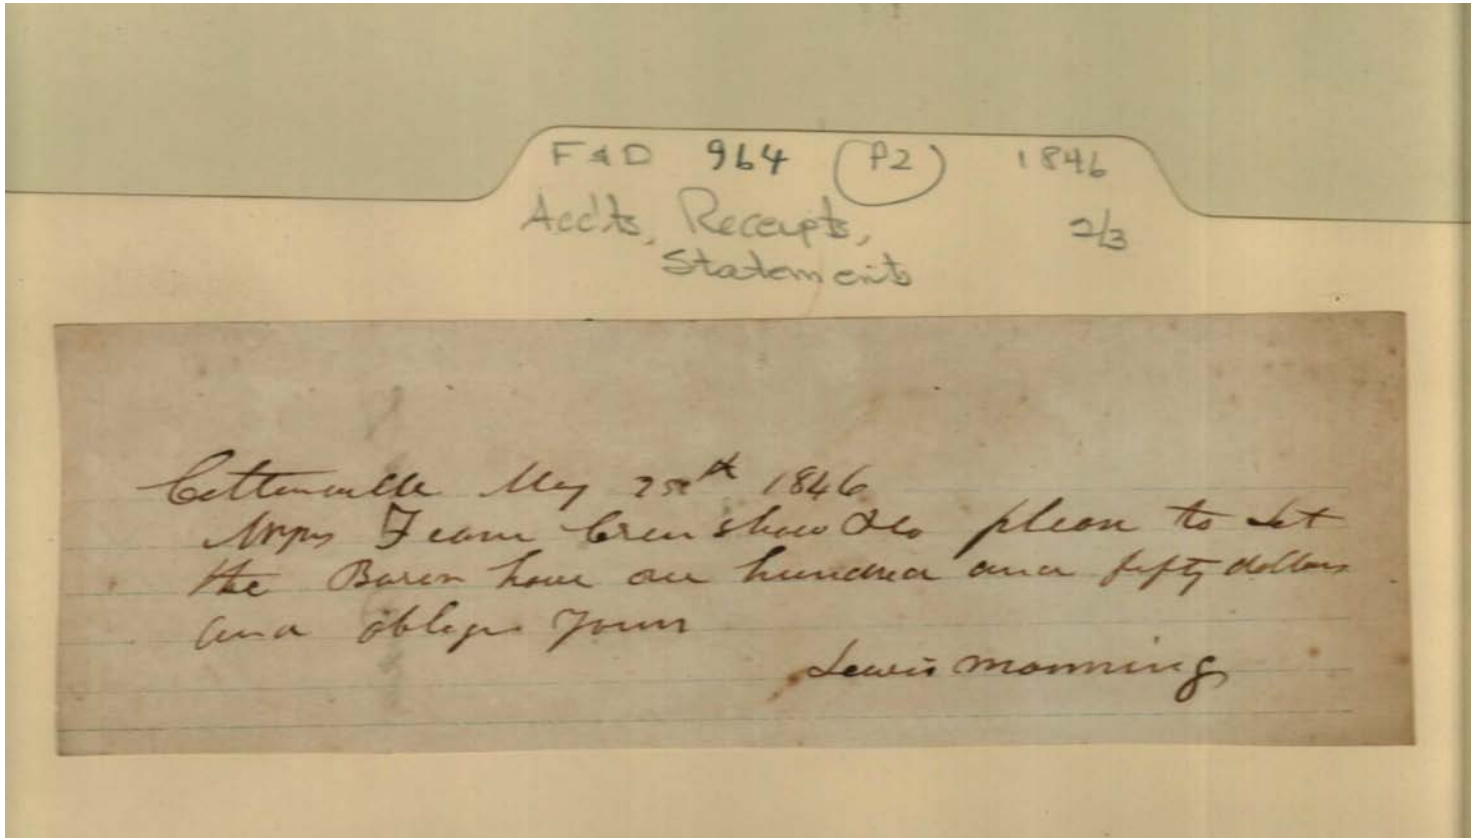 F & D 964 (P2) 1846
Acc'ts, Receipts, 2/3
Statements
Cottonville May 25th 1846
Messrs Fearn Crenshaw & Co please to let
the Baren have one hundred and fifty dollars
and oblige yours
Lewis Manning